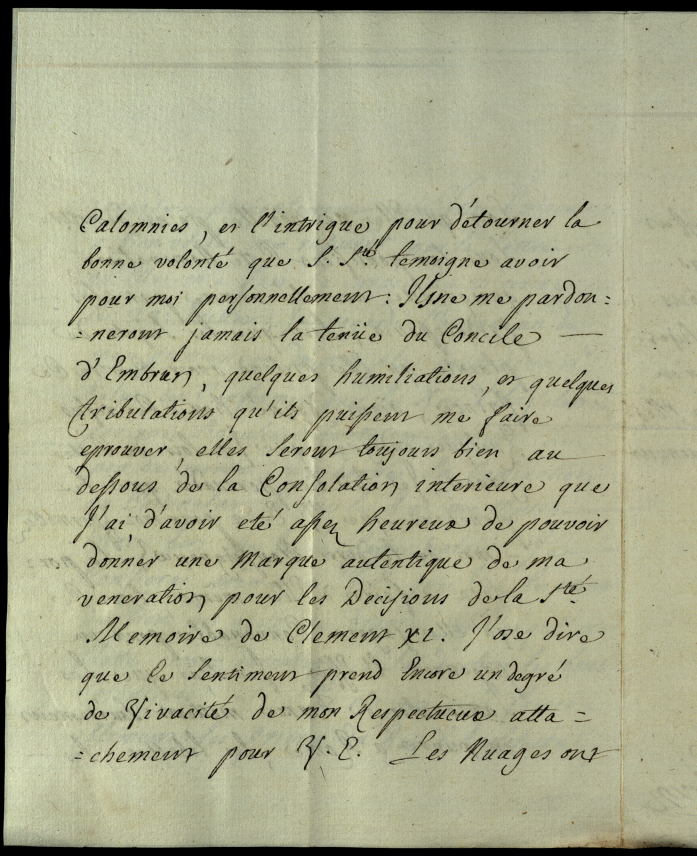 Calomnies, et l'intrigue pour détourner la
bonne volonté que S. S.té temoigne avoir
pour moi personnellement: Ils ne me pardon:
:neront jamais la tenüe du Concile —
d'Embrun, quelques humiliations, et quelques
tribulations qu'ils puissent me faire
eprouver, elles seront toujours bien au
dessous de la Consolation interieure que
J'ai d'avoir eté assez heureux de pouvoir
donner une Marque autentique de ma
veneration pour les Decisions de la S.té
Memoire de Clement XI. J'ose dire
que ce sentiment prend Encore un degré
de Vivacité de mon Respectueux atta=
=chement pour V. E. Les Nuages ont